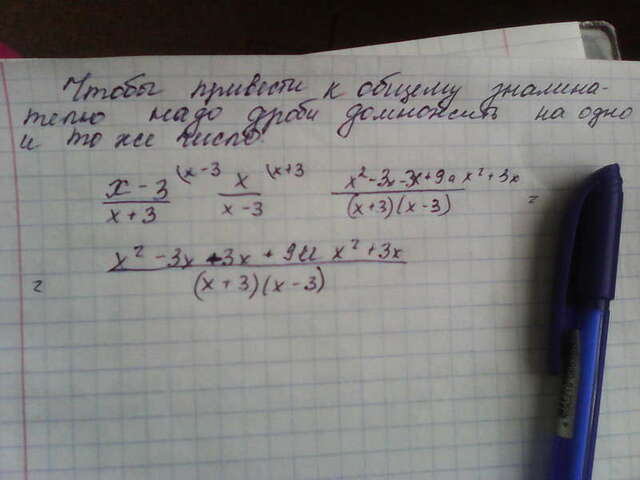 Чтобы привести к общему знамина-
телю надо дроби домножить на одно
и то же число.
x - 3 / x + 3 (x - 3 x / x - 3 (x + 3 x² - 3x - 3x + 9 и x² + 3x / (x + 3)(x - 3) =
= x² - 3x - 3x + 9 и x² + 3x / (x + 3)(x - 3)